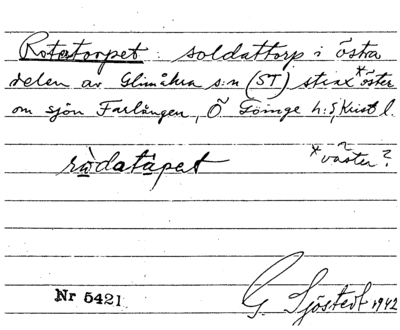 Rotatorpet: soldattorp i östra
delen av Glimåkra s:n (ST) strax *öster
om sjön Farlången, Ö. Göinge h:d, Krist l.
rωdatåpet
* väster?
Nr 5421
G. Sjöstedt 1942